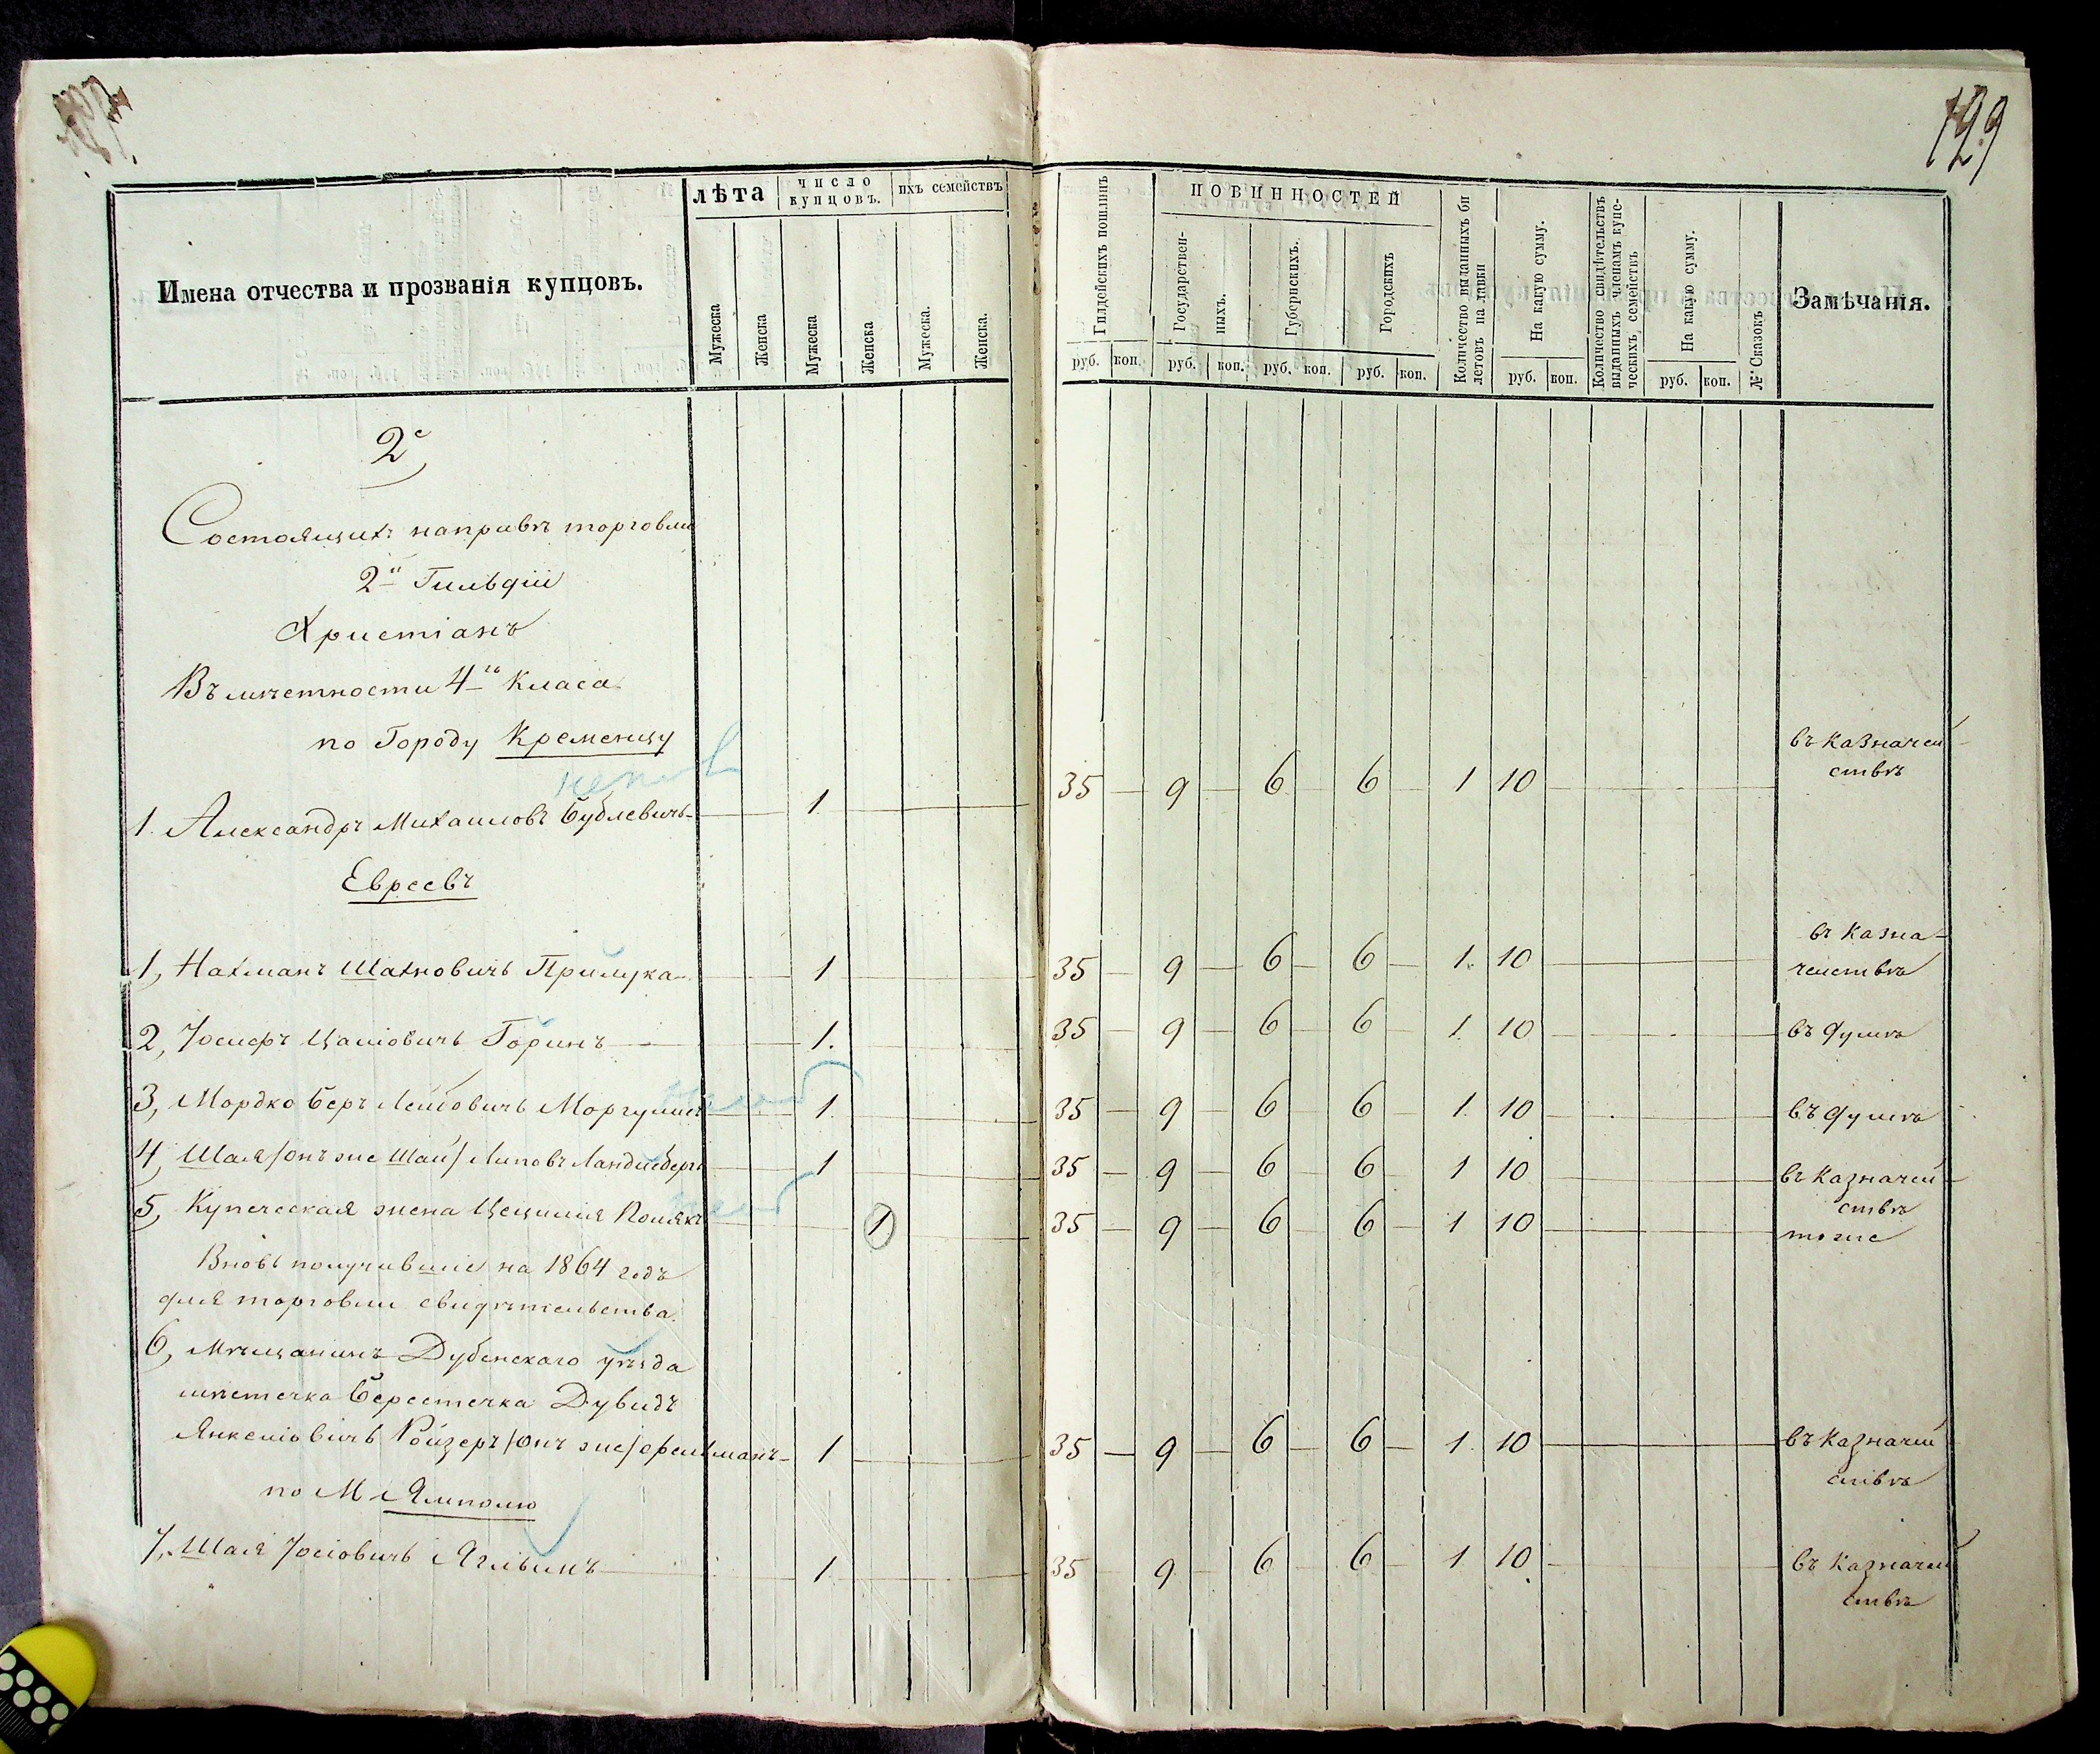 129
Имена отчества и прозванія купцовъ.
лѣта
число купцовъ.
ихъ семействъ
Мужеска
Женска
Мужеска
Женска
Мужеска.
Женска.
Гилдейскихъ пошлинъ
руб. коп.
ПОВИННОСТЕЙ
Государствен-
ныхъ.
руб. коп.
Губернскихъ.
руб. коп.
Городскихъ
руб. коп.
Количество выданныхъ би
летовъ на лавки
На какую сумму.
руб. коп.
Количество свидѣтельствъ
выданныхъ членамъ купе-
ческихъ семействъ
На какую сумму.
руб. коп.
№ Сказокъ
Замѣчанія.
2
Состоящихъ направѣ торговли
2й Гильдіи
Христіанъ
Въ мѣстности 4го Класа
по Городу Кременцу
1. Александръ Михаиловъ Бублевичь 1 35 9 6 6 1 10 въ Казначей
ствѣ
Евреевъ
1, Нахманъ Шахновичь Прилука 1 35 9 6 6 1. 10 въ Казна-
чействѣ
2, Іосифъ Цаліовичь Горинъ 1. 35 9 6 6 1. 10 въ Думѣ
3, Мордко Беръ Лейбовичь Моргулисъ 1. 35 9 6 6 1. 10 въ Думѣ
4, Шая /онъ же Шай/ Липовъ Ландисбергъ 1 35 9 6 6 1 10 въ Казначей
ствѣ
5, Купеческая жена Цецилія Полякъ 1 35 9 6 6 1 10 тоже
Вновь получившіе на 1864 годъ
для торговли свидѣтельства.
6, Мѣщанинъ Дубенскаго уѣзда
мѣстечка Берестечка Дувидъ
Янкеліовичь Ройзеръ /онъ же/ Фельманъ 1 35 9 6 6 1. 10 въ Казначей
ствѣ
по М Ямполю
7, Шая Іосіовичь Яглінъ 1 35 9 6 6 1 10. въ Казначей
ствѣ